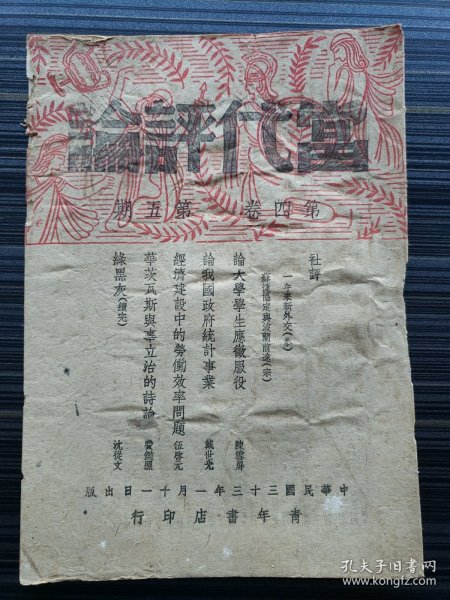 當代評論
第四卷 第五期
社評
一年來新外交(奎)
蘇捷協定與波蘭前途(宗)
論大學學生應徵服役 陳雪屏
論我國政府統計事業 戴世光
經濟建設中的勞働效率問題 伍啓元
華茨瓦斯與辜立治的詩論 費鑑照
綠黑灰(續完) 沈從文
中華民國三十三年一月十一日出版
青年書店印行
孔夫子旧书网
book.kongfz.com